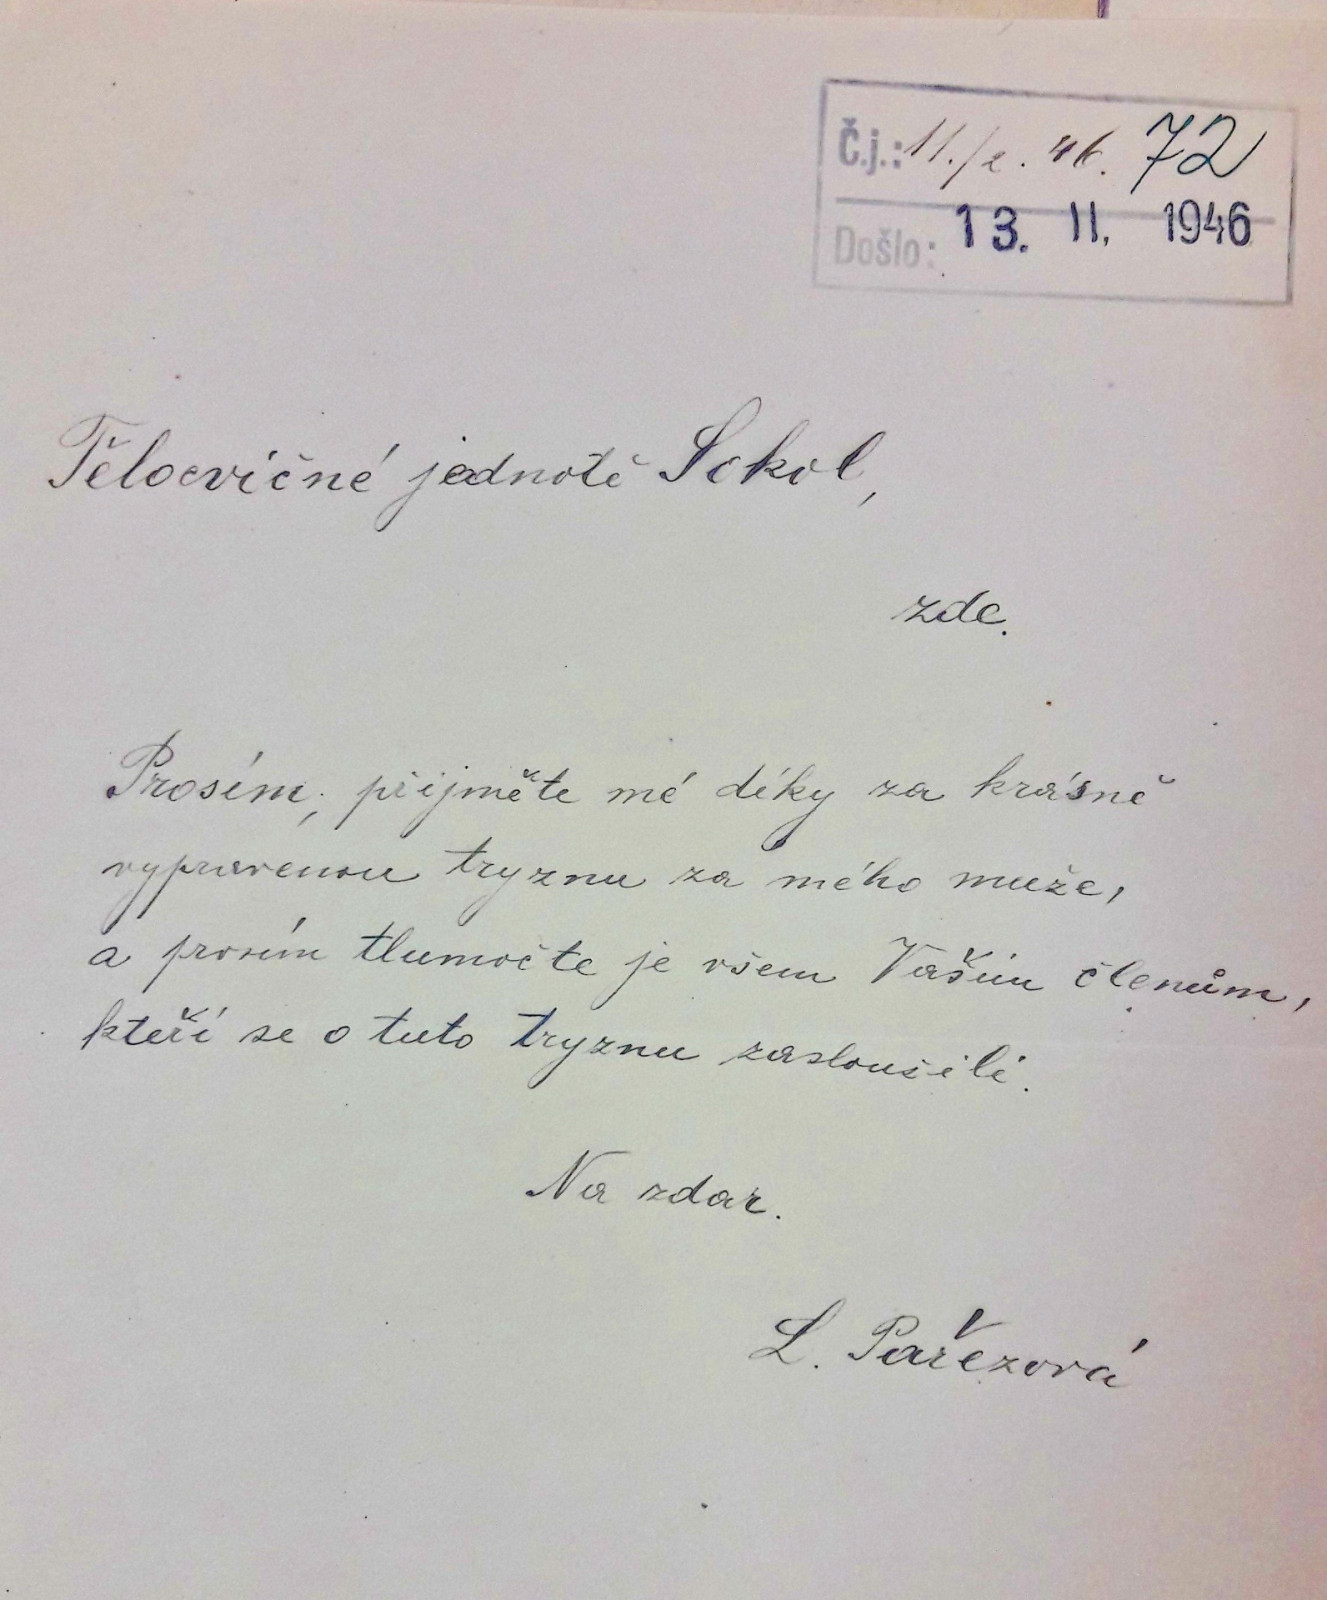 Č.j.: 11./2. 46. 72
Došlo: 13. II. 1946
Tělocvičné jednotě Sokol,
zde.
Prosím, přijměte mé díky za krásně
vypravenou tryznu za mého muže,
a prosím tlumočte je všem Vašim členům,
kteří se o tuto tryznu zasloužili.
Na zdar.
L. Pařezová